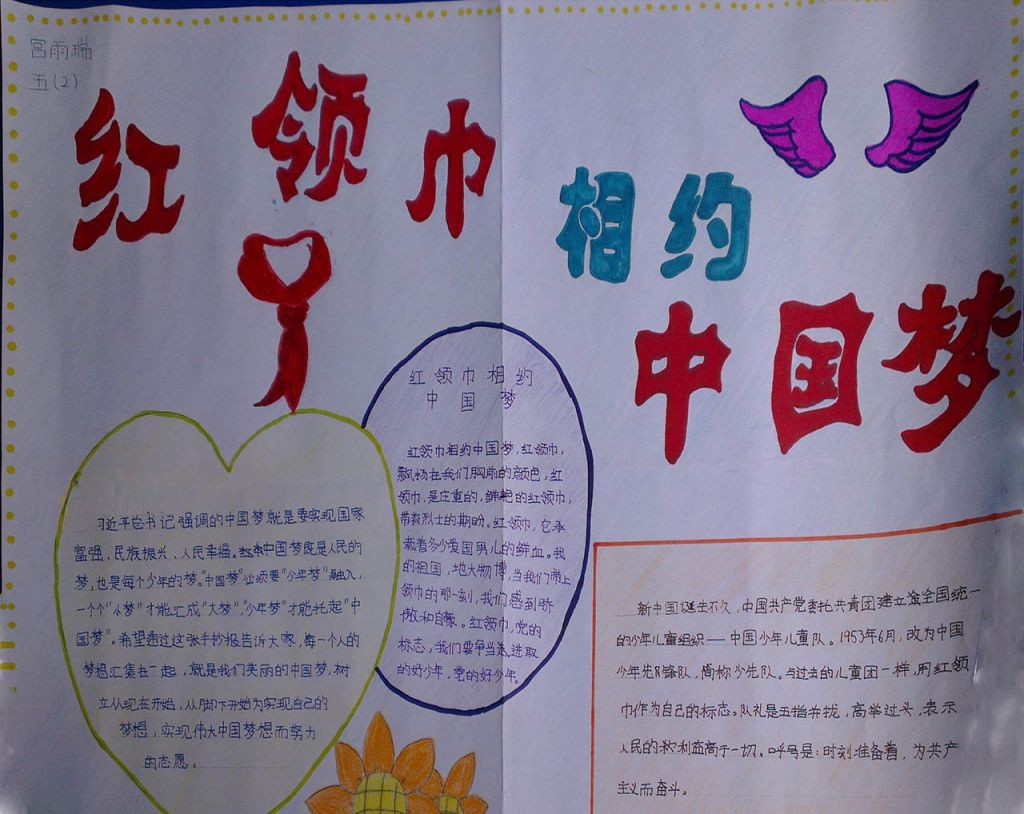 宫雨瑞
五(2)
红领巾
相约
中国梦
习近平总书记强调的中国梦就是要实现国家
富强、民族振兴、人民幸福。中国梦既是人民的
梦，也是每个少年的梦。“中国梦”必须要“少年梦”融入，
一个个“小梦”才能汇成“大梦”，“少年梦”才能托起“中
国梦”。希望通过这张手抄报告诉大家，每一个人的
梦想汇集在一起，就是我们美丽的中国梦，树
立从现在开始，从脚下开始为实现自己的
梦想，实现伟大中国梦想而努力
的志愿。
红领巾相约
中国梦
红领巾相约中国梦，红领巾，
飘扬在我们胸前的颜色，红
领巾，是庄重的，鲜艳的红领巾，
带着烈士的期盼。红领巾，它承
载着多少爱国男儿的鲜血。我
的祖国，地大物博，当我们带上
领巾的那一刻，我们感到骄
傲和自豪。红领巾，党的
标志，我们要争当进取
的好少年，党的好少年。
新中国诞生不久，中国共产党委托共青团建立全国统一
的少年儿童组织——中国少年儿童队。1953年6月，改为中国
少年先锋队，简称少先队。与过去的儿童团一样，用红领
巾作为自己的标志。队礼是五指并拢，高举过头，表示
人民的利益高于一切。呼号是：时刻准备着，为共产
主义而奋斗。